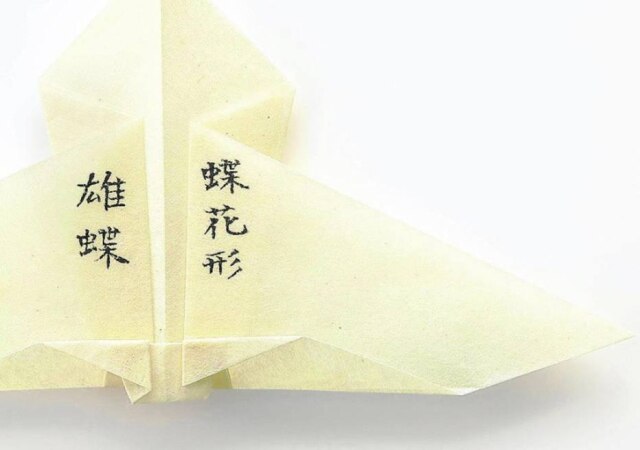 蝶花形
雄蝶